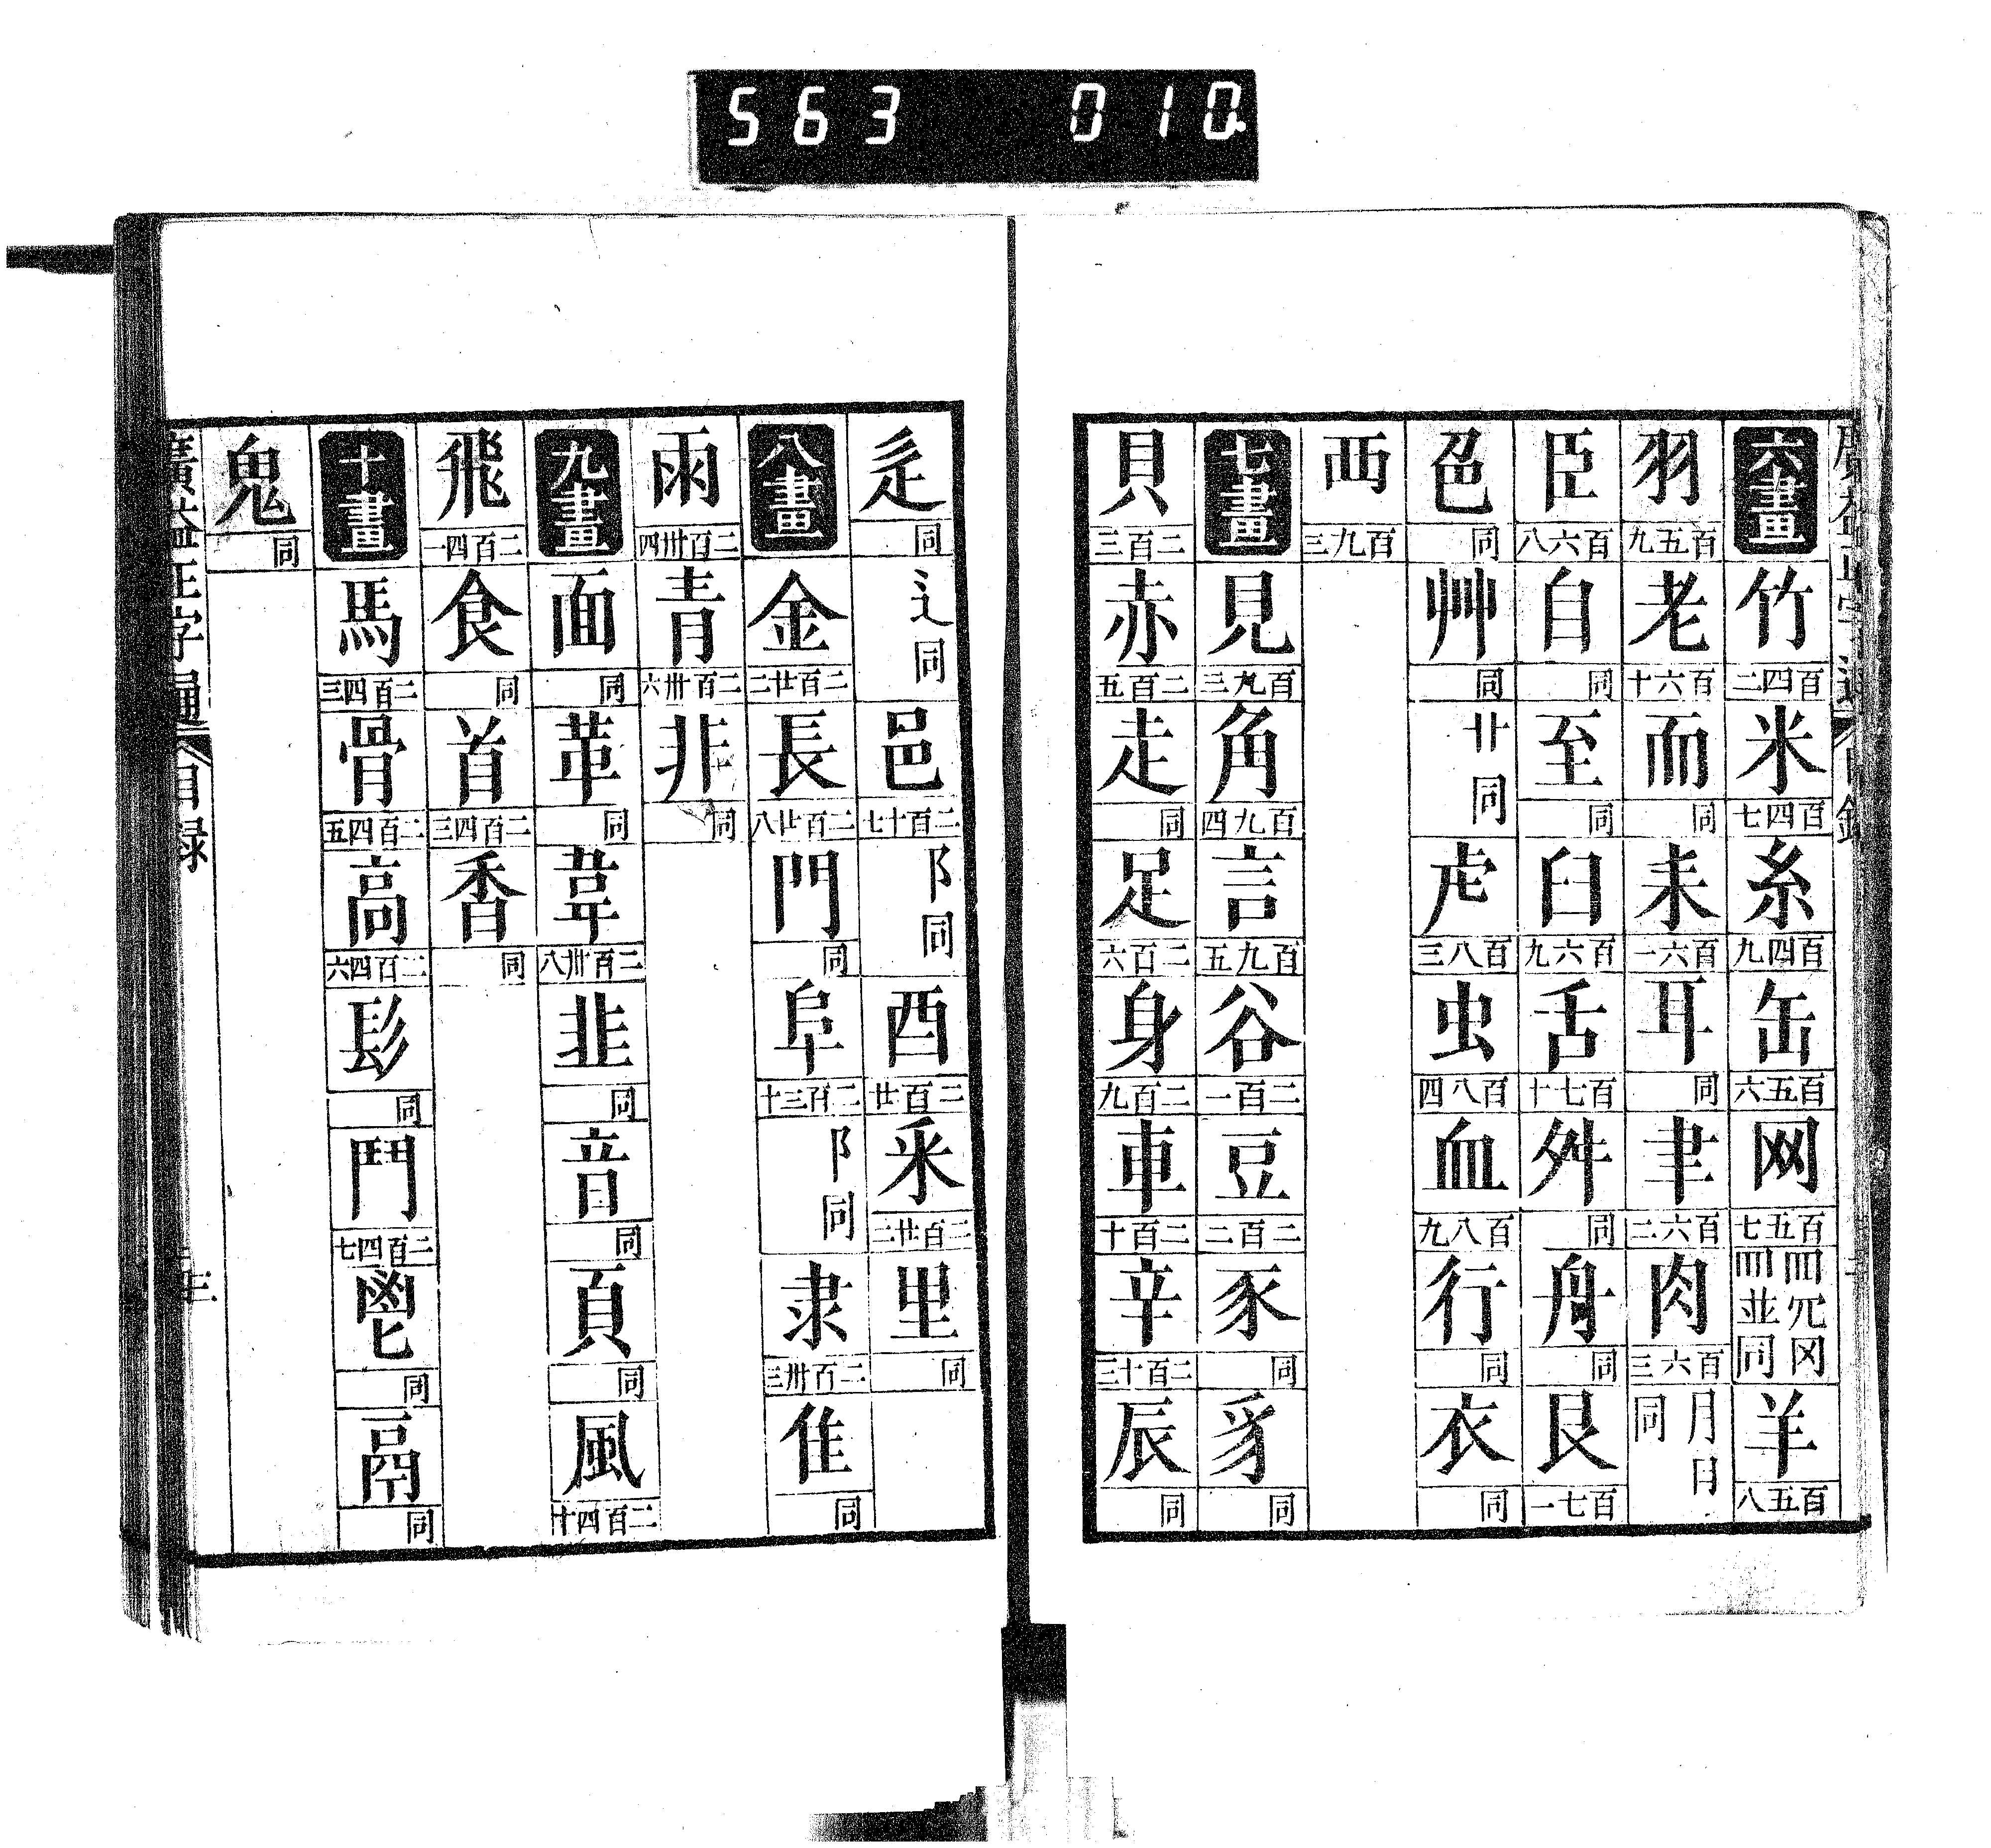 563 010
六畫
竹 百四二
米 百四七
糸 百四九
缶 百五六
网 百五七
罒 𦉰 冈 罒 並同
羊 百五八
羽 百五九
老 百六十
而 同
耒 百六一
耳 同
聿 百六二
肉 百六三
月 同
臣 百六八
自 同
至 同
臼 百六九
舌 百七十
舛 同
舟 同
艮 百七一
色 同
艸 同
卄 同
虍 百八三
虫 百八四
血 百八九
行 同
衣 同
襾 百九三
七畫
見 百九三
角 百九四
言 百九五
谷 二百一
豆 二百二
豕 同
豸 同
貝 二百三
赤 二百五
走 同
足 二百六
身 二百九
車 二百十
辛 二百十三
辰 同
辵 同
辶 同
邑 二百十七
阝 同
酉 二百廿
釆 二百廿二
里 同
八畫
金 二百廿二
長 二百廿八
門 同
阜 二百三十
阝 同
隶 二百卅三
隹 同
雨 二百卅四
青 二百卅六
非 同
九畫
面 同
革 同
韋 二百卅八
韭 同
音 同
頁 同
風 二百四十
飛 二百四一
食 同
首 二百四三
香 同
十畫
馬 二百四三
骨 二百四五
高 二百四六
髟 同
鬥 二百四七
鬯 同
鬲 同
鬼 同
廣益正字通 目録 三